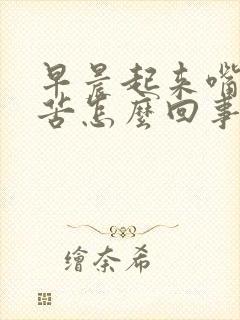 早晨起来嘴
苦怎麽回事
繪奈希